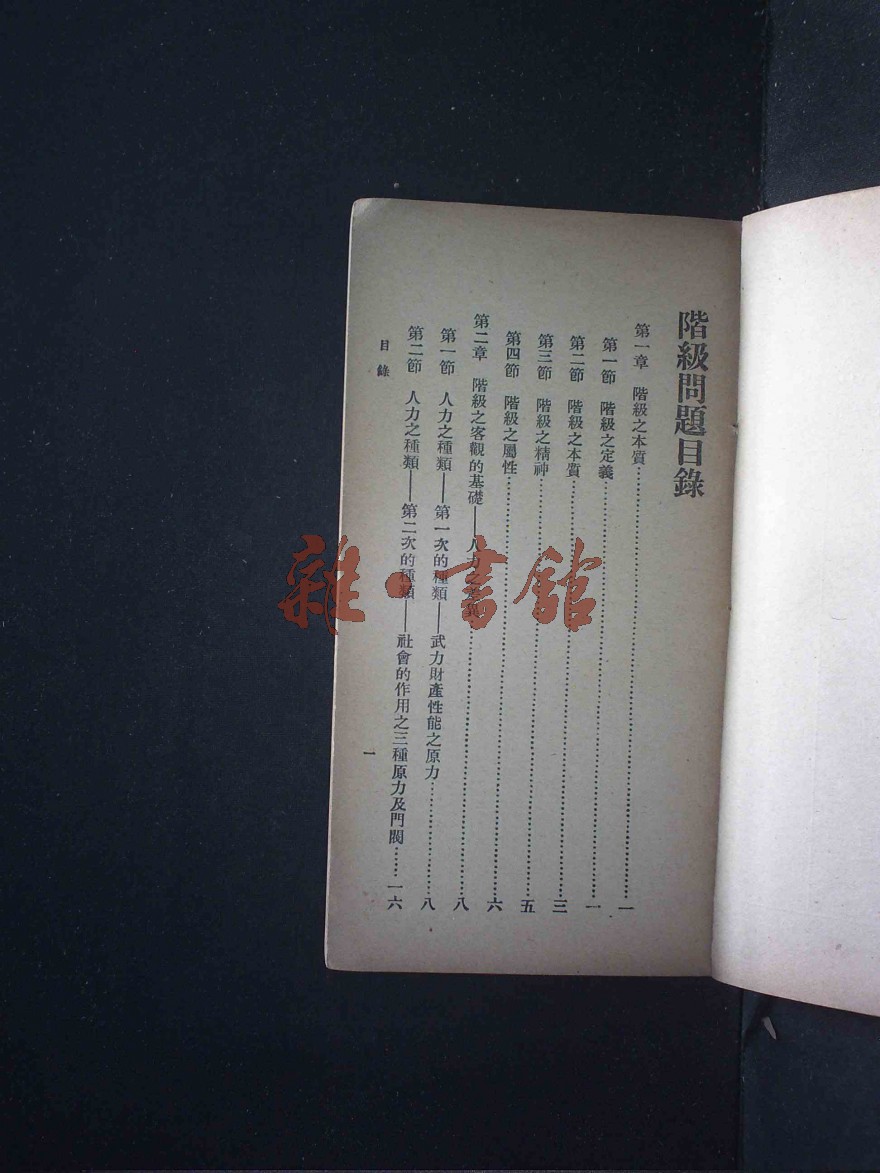 階級問題目錄
第一章　階級之本質……一
第一節　階級之定義……一
第二節　階級之本質……三
第三節　階級之精神……五
第四節　階級之屬性……六
第二章　階級之客觀的基礎——人力之差異……八
第一節　人力之種類——第一次的種類——武力財產性能之原力……八
第二節　人力之種類——第二次的種類——社會的作用之三種原力及門閥……一六
目錄
一
雜·書館